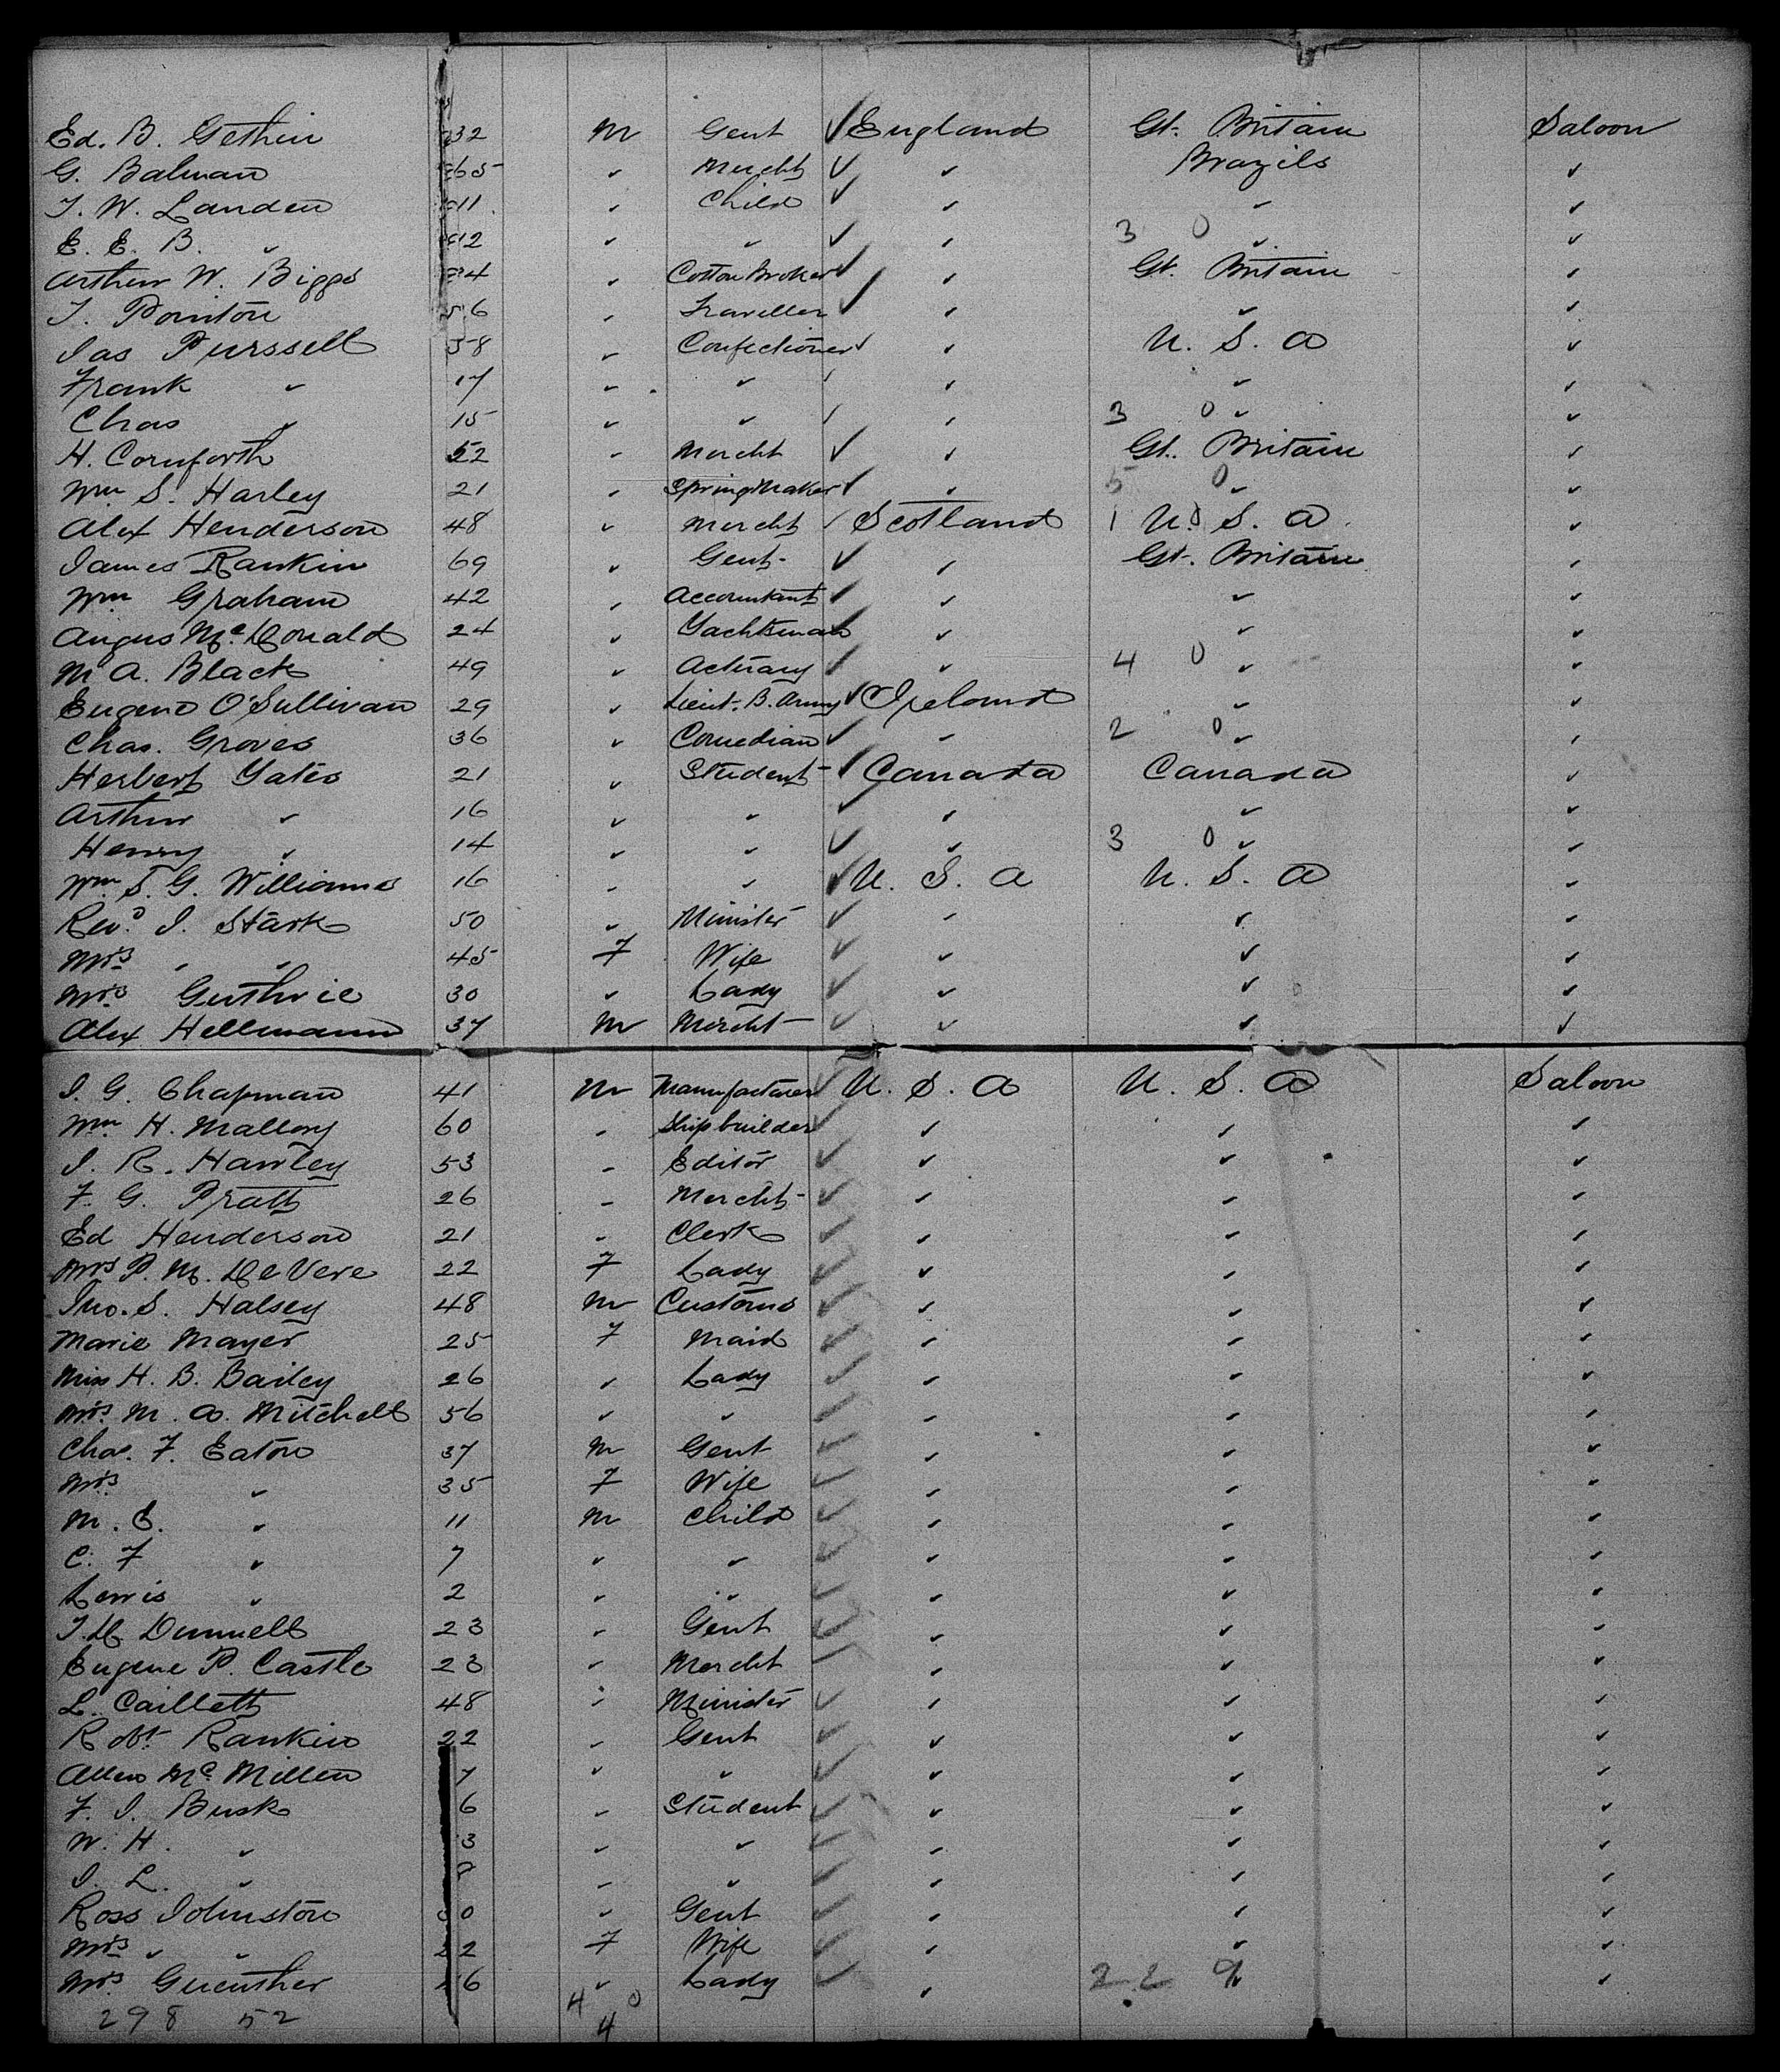 Ed. B. Gethin 32 M Gent ✓ England Gt. Britain Saloon
G. Balman 65 ✓ Mercht ✓ ✓ Brazils ✓
T. W. Landen 11 ✓ Child ✓ ✓ ✓ ✓
E. E. B. ✓ 12 ✓ ✓ ✓ ✓ 3 0 ✓ ✓
Arthur W. Biggs 34 ✓ Cotton Broker ✓ ✓ Gt. Britain ✓
T. Pointon 56 ✓ Traveller ✓ ✓ ✓ ✓
Jas Purssell 58 ✓ Confectioner ✓ ✓ U. S. A ✓
Frank ✓ 17 ✓ ✓ ✓ ✓ ✓ ✓
Chas ✓ 15 ✓ ✓ ✓ ✓ 3 0 ✓ ✓
H. Cornforth 52 ✓ Mercht ✓ ✓ Gt. Britain ✓
Wm S. Harley 21 ✓ Spring Maker ✓ ✓ 5 0 ✓ ✓
Alex Henderson 48 ✓ Mercht ✓ Scotland 1 0 U. S. A. ✓
James Rankin 69 ✓ Gent ✓ ✓ Gt. Britain ✓
Wm Graham 42 ✓ Accountant ✓ ✓ ✓ ✓
Angus McDonald 24 ✓ Yachtsman ✓ ✓ ✓ ✓
M A. Black 49 ✓ Actuary ✓ ✓ 4 0 ✓ ✓
Eugene O'Sullivan 29 ✓ Lieut. B. Army ✓ Ireland ✓ ✓
Chas. Groves 36 ✓ Comedian ✓ ✓ 2 0 ✓ ✓
Herbert Yates 21 ✓ Student ✓ Canada Canada ✓
Arthur ✓ 16 ✓ ✓ ✓ ✓ ✓ ✓
Henry ✓ 14 ✓ ✓ ✓ ✓ 3 0 ✓ ✓
Wm S. G. Williams 16 ✓ ✓ ✓ U. S. A U. S. A ✓
Revd J. Stark 50 ✓ Minister ✓ ✓ ✓ ✓
Mrs ✓ ✓ 45 F Wife ✓ ✓ ✓ ✓
Mrs Guthrie 30 ✓ Lady ✓ ✓ ✓ ✓
Alex Hellmann 37 M Mercht ✓ ✓ ✓ ✓
J. G. Chapman 41 M Manufacturer ✓ U. S. A U. S. A Saloon
Wm H. Mallory 60 ✓ Shipbuilder ✓ ✓ ✓ ✓
J. R. Hawley 53 ✓ Editor ✓ ✓ ✓ ✓
F. G. Pratt 26 ✓ Mercht ✓ ✓ ✓ ✓
Ed Henderson 21 ✓ Clerk ✓ ✓ ✓ ✓
Mrs P. M. DeVere 22 F Lady ✓ ✓ ✓ ✓
Jno. S. Halsey 48 M Customs ✓ ✓ ✓ ✓
Marie Mayer 25 F Maid ✓ ✓ ✓ ✓
Miss H. B. Bailey 26 ✓ Lady ✓ ✓ ✓ ✓
Mrs. M. A. Mitchell 56 ✓ ✓ ✓ ✓ ✓ ✓
Chas. F. Eaton 37 M Gent ✓ ✓ ✓ ✓
Mrs ✓ 35 F Wife ✓ ✓ ✓ ✓
M. E. ✓ 11 M Child ✓ ✓ ✓ ✓
C. F ✓ 7 ✓ ✓ ✓ ✓ ✓ ✓
Lewis ✓ 2 ✓ ✓ ✓ ✓ ✓ ✓
T. D. Dunnell 23 ✓ Gent ✓ ✓ ✓ ✓
Eugene P. Castle 23 ✓ Mercht ✓ ✓ ✓ ✓
L. Caillett 48 ✓ Minister ✓ ✓ ✓ ✓
Robt Rankin 22 ✓ Gent ✓ ✓ ✓ ✓
Allen McMillen 7 ✓ ✓ ✓ ✓ ✓ ✓
F. J. Busk 6 ✓ Student ✓ ✓ ✓ ✓
W. H. ✓ 3 ✓ ✓ ✓ ✓ ✓ ✓
J. L. ✓ ✓ ✓ ✓ ✓ ✓ ✓
Ross Johnston 30 ✓ Gent ✓ ✓ ✓ ✓
Mrs ✓ ✓ 22 F Wife ✓ ✓ ✓ ✓
Mrs Guenther 6 ✓ Lady ✓ ✓ 22 ✓ ✓
298 52 4 0
4